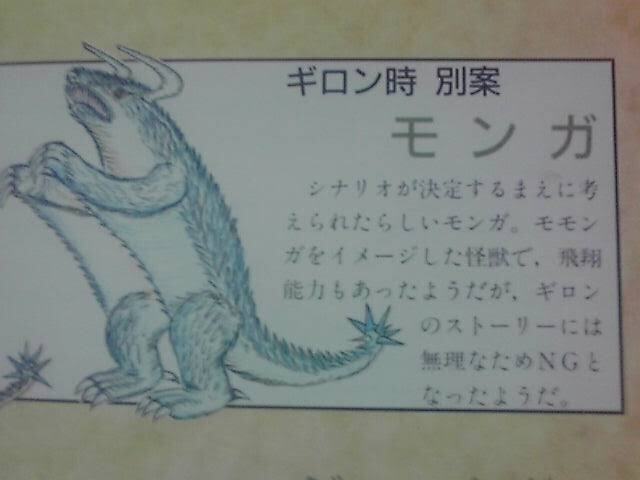 ギロン時 別案
モンガ
シナリオが決定するまえに考
えられたらしいモンガ。モモン
ガをイメージした怪獣で、飛翔
能力もあったようだが、ギロン
のストーリーには
無理なためNGと
なったようだ。